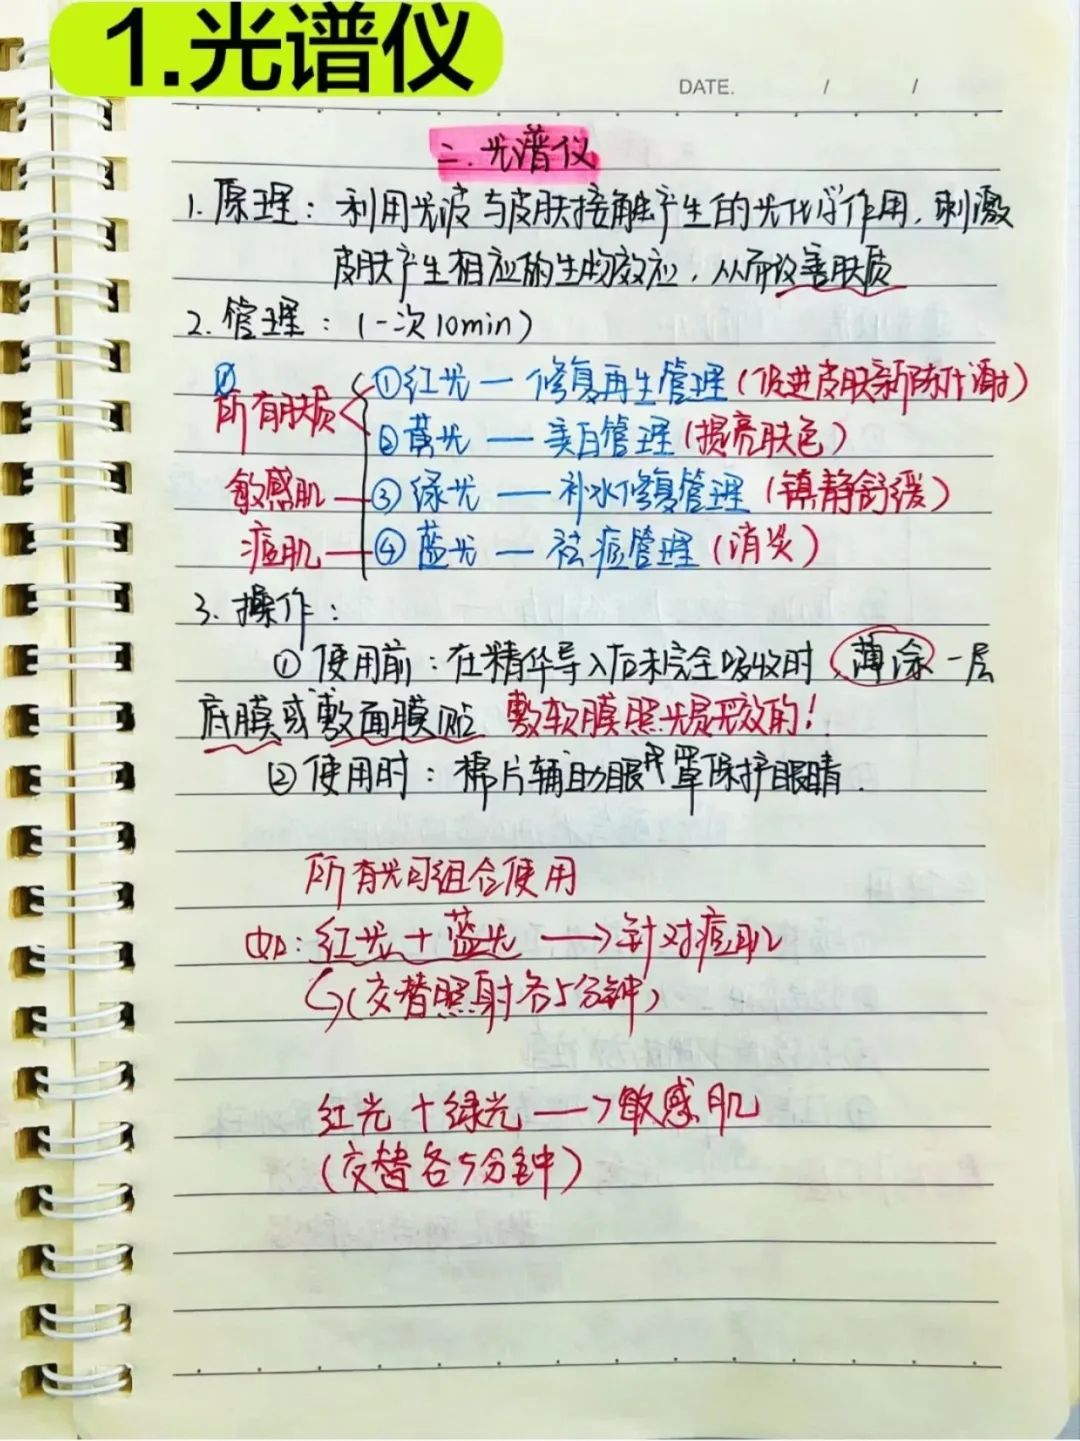 1.光谱仪
DATE. / /
二.光谱仪
1.原理：利用光波与皮肤接触产生的光化学作用，刺激
皮肤产生相应的生物效应，从而改善肤质
2.管理：(一次10min)
所有肤质 ①红光—修复再生管理(促进皮肤新陈代谢)
②黄光—美白管理(提亮肤色)
敏感肌—③绿光—补水修复管理(镇静舒缓)
痘肌—④蓝光—祛痘管理(消炎)
3.操作：
①使用前：在精华导入后未完全吸收时薄涂一层
底膜或敷面膜贴 敷软膜照光是无效的！
②使用时：棉片辅助眼罩保护眼睛.
所有光可组合使用
如：红光+蓝光→针对痘肌
(交替照射各5分钟)
红光+绿光→敏感肌
(交替各5分钟)